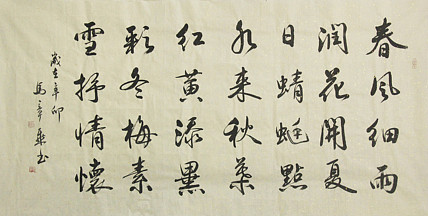 春風細雨
潤花開夏
日蜻蜓點
水来秋葉
紅黄添異
彩冬梅素
雪抒情懷
歲在辛卯
馬